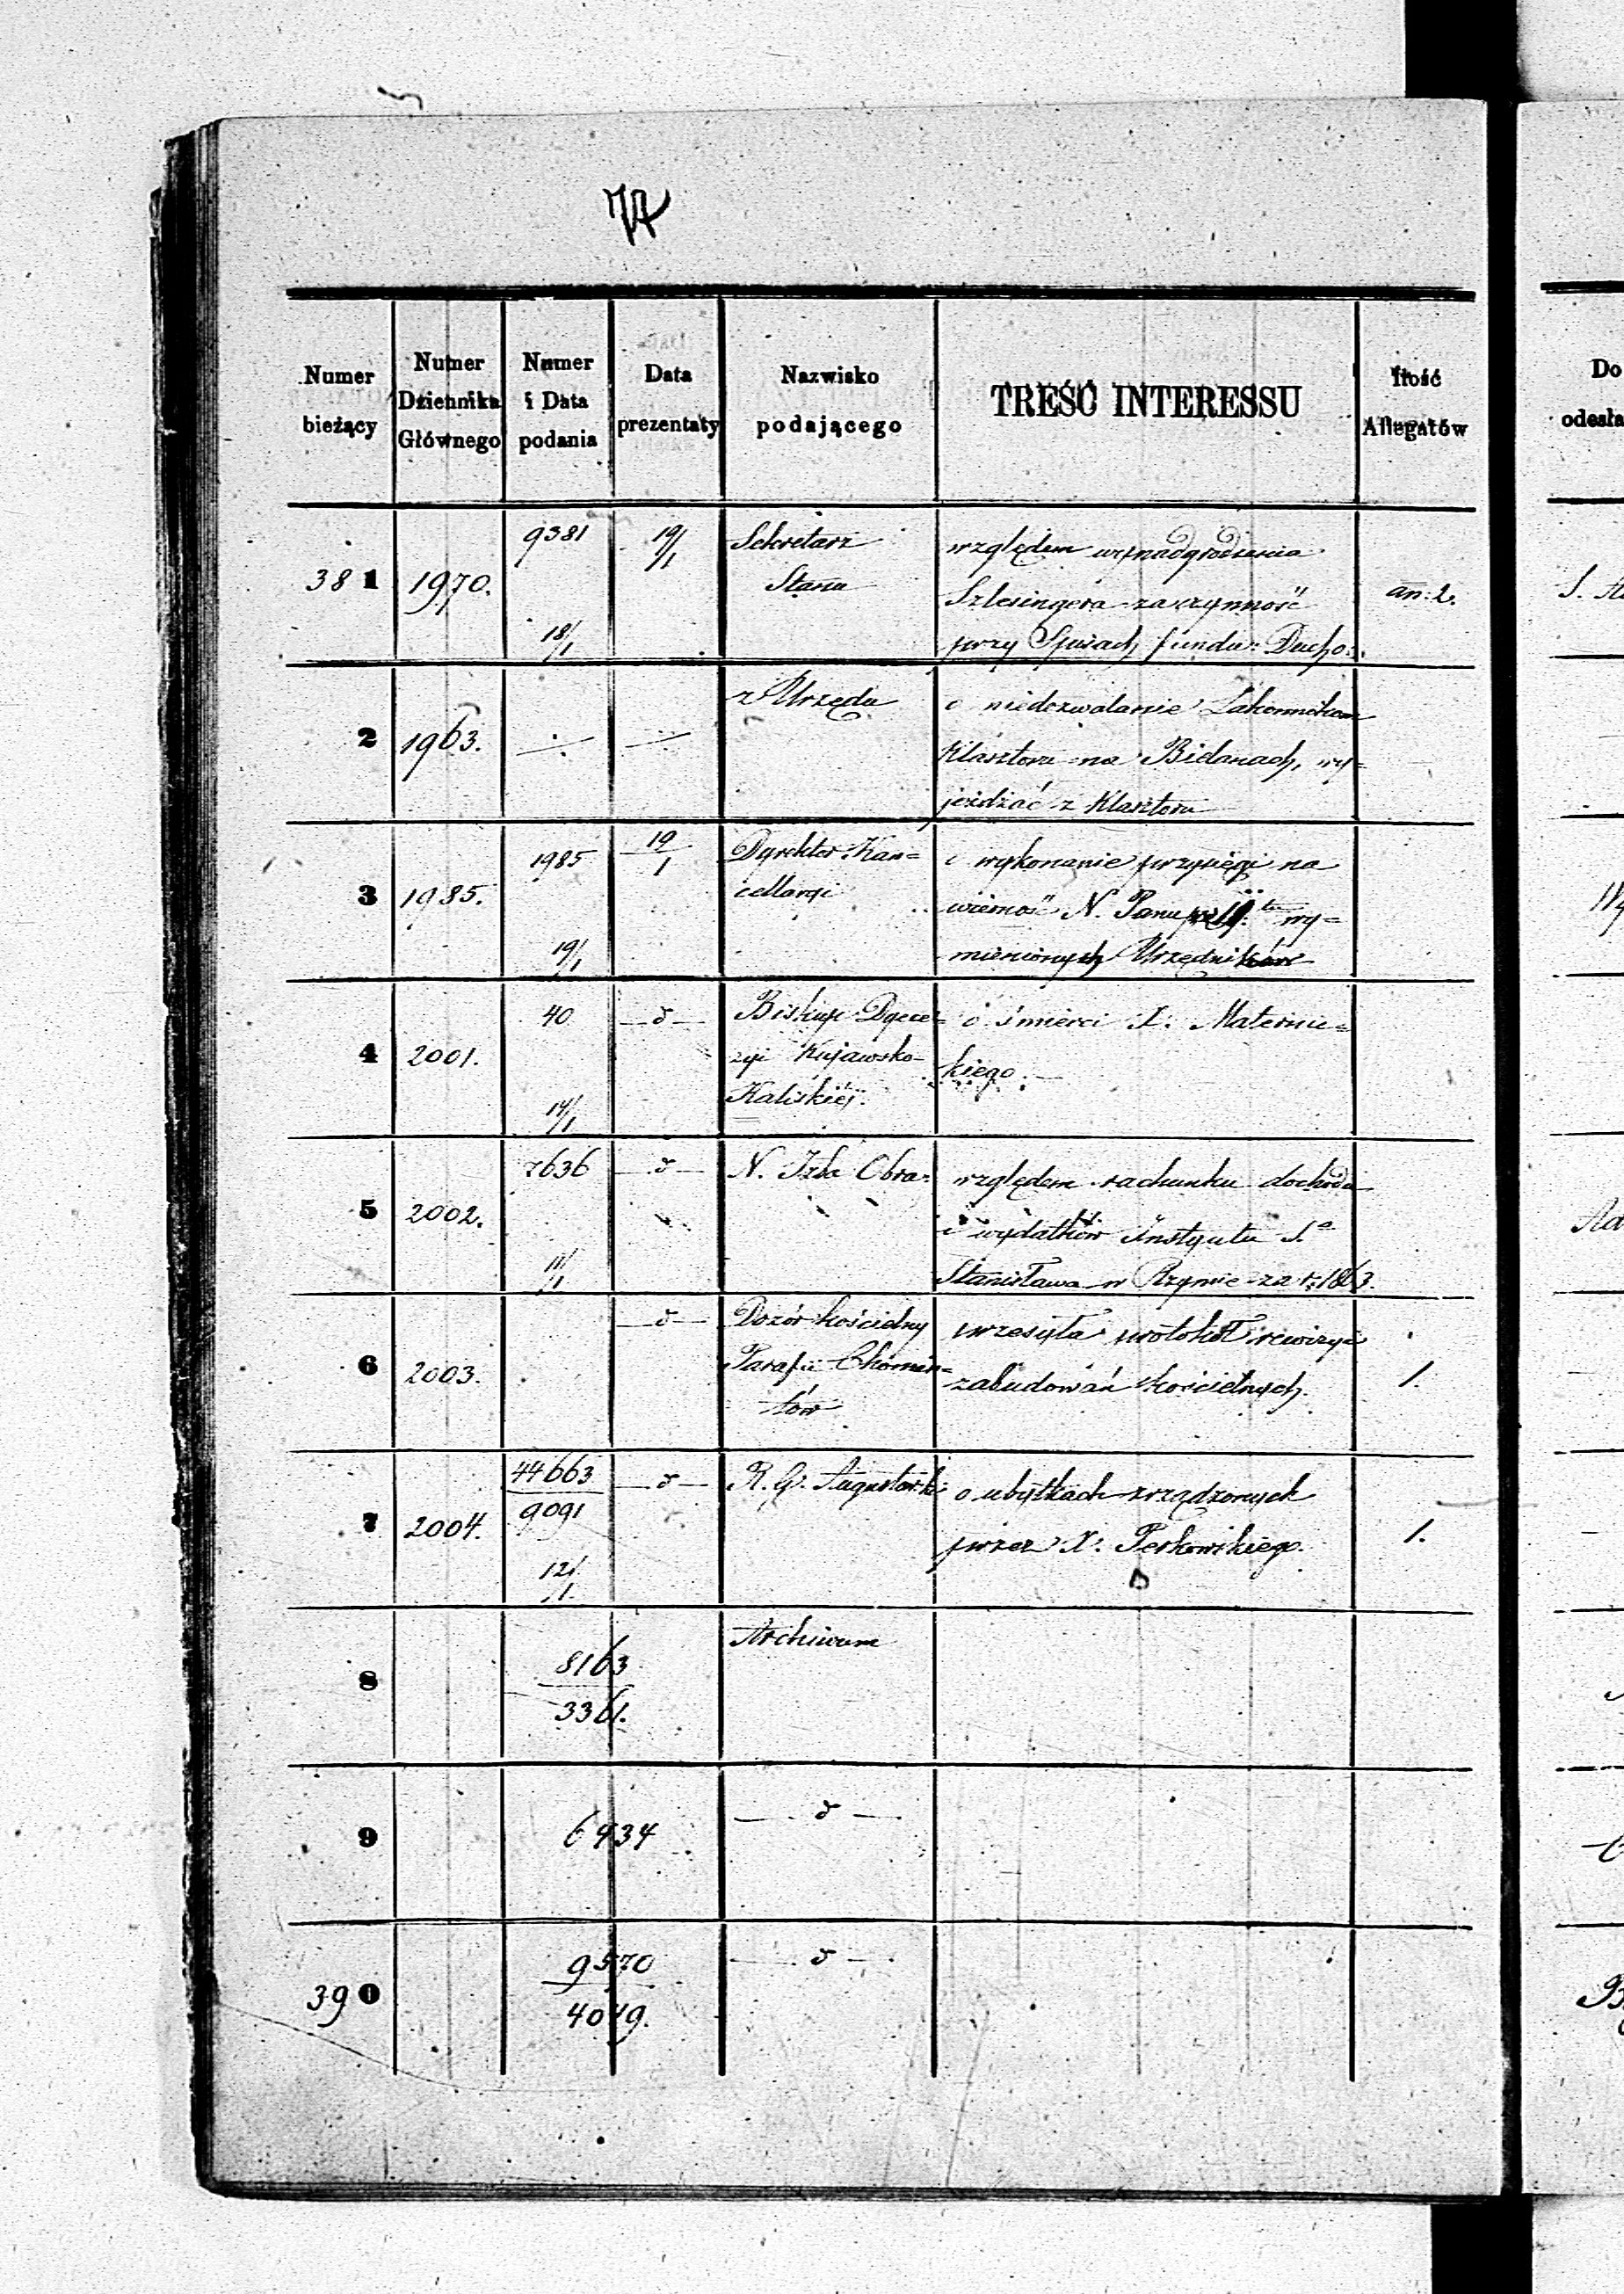 74
Numer bieżący
Numer Dziennika Głównego
Numer i Data podania
Data prezentaty
Nazwisko podającego
TREŚĆ INTERESSU
Ilość Allegatów
Do
odesła
381 1970. 9381 18/1 19/1
Sekretarz
Stanu
względem wynadgrodzenia
Szlesingera za czynność
przy Spisach fundu: Ducho:
an: 2.
2 1963.
z Urzędu
o niedozwalanie Zakonnikom
Klasztoru na Bielanach, wy=
jeżdżać z Klasztoru
3 1985. 1985 19/1 19/1
Dyrektor Kan=
cellaryi
o wykonanie przysięgi na
wierność N. Panu wy=
mienionych Urzędników
4 2001. 40 14/1 — d —
Biskup Dyece=
zyi Kujawsko-
Kaliskiéj.
o śmierci X. Maternic=
kiego.
5 2002. 7636 11/1 — d —
N. Izba Obra:
względem rachunku dochodu
i wydatków Instytutu S.
Stanisława w Rzymie za r. 1863.
6 2003. — d —
Dozór kościelny
Parafii
łów
przesyła protokół rewizyi
zabudowań kościelnych.
1.
7 2004. 44663 9091 12/1. — d —
R. G. Augustowski
o ubytkach zrządzonych
przez X. Perkowskiego.
1.
8 8163 3361.
Archiwum
9 6434
— d —
390 9570 4049.
— d —